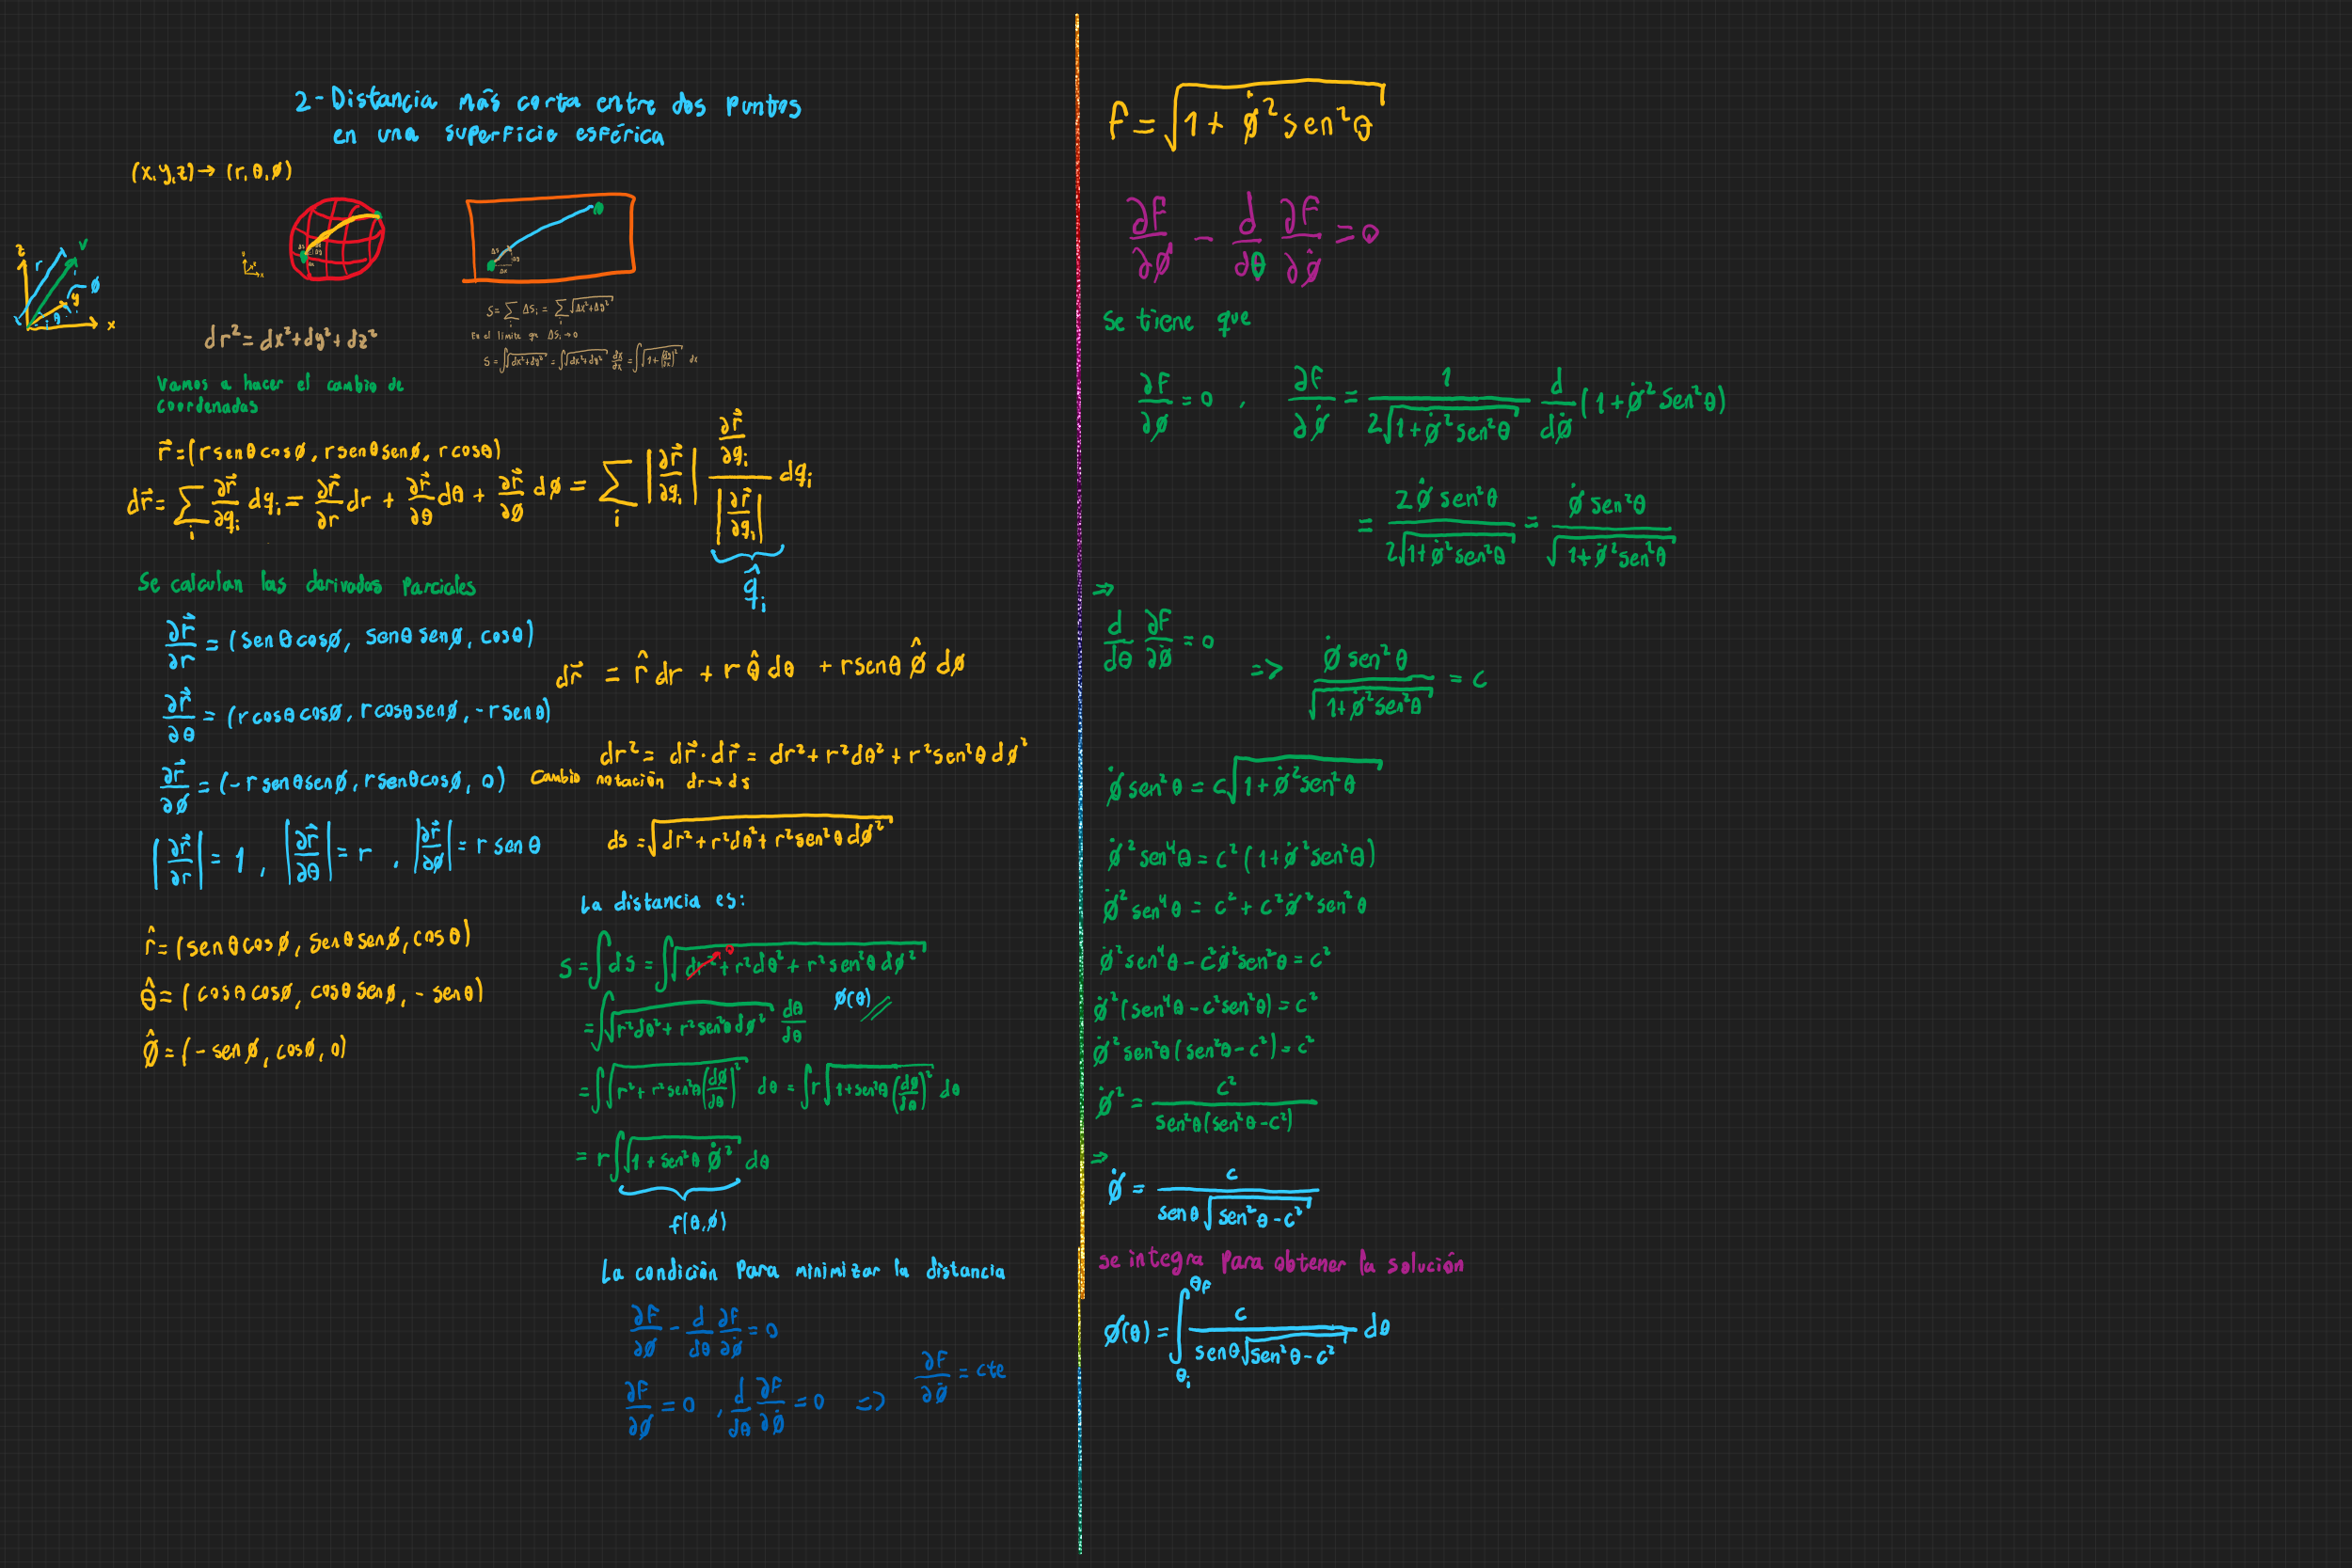 2-Distancia más corta entre dos puntos
en una superficie esférica
(x,y,z) → (r,θ,ø)
z
r
v
ø
y
θ
x
dr² = dx²+dy²+dz²
S = ∑_i ΔS_i = ∑_i √(Δx²+Δy²)
En el límite que ΔS_i → 0
S = ∫√(dx²+dy²) = ∫√(dx²+dy²) dx/dx = ∫√(1+(dy/dx)²) dx
Vamos a hacer el cambio de
coordenadas
r⃗ = (r senθ cosø, r senθ senø, r cosθ)
dr⃗ = ∑_i ∂r⃗/∂q_i dq_i = ∂r⃗/∂r dr + ∂r⃗/∂θ dθ + ∂r⃗/∂ø dø = ∑_i |∂r⃗/∂q_i| (∂r⃗/∂q_i)/|∂r⃗/∂q_i| dq_i
q̂_i
Se calculan las derivadas parciales
∂r⃗/∂r = (senθ cosø, senθ senø, cosθ)
∂r⃗/∂θ = (r cosθ cosø, r cosθ senø, -r senθ)
∂r⃗/∂ø = (-r senθ senø, r senθ cosø, 0)
|∂r⃗/∂r| = 1, |∂r⃗/∂θ| = r, |∂r⃗/∂ø| = r senθ
r̂ = (senθ cosø, senθ senø, cosθ)
θ̂ = (cosθ cosø, cosθ senø, -senθ)
ø̂ = (-senø, cosø, 0)
dr⃗ = r̂ dr + r θ̂ dθ + r senθ ø̂ dø
dr² = dr⃗·dr⃗ = dr² + r²dθ² + r²sen²θ dø²
Cambio notación dr → ds
ds = √(dr² + r²dθ² + r²sen²θ dø²)
La distancia es:
S = ∫ds = ∫√(dr² + r²dθ² + r²sen²θ dø²)
0
= ∫√(r²dθ² + r²sen²θ dø²) dθ/dθ
ø(θ)
= ∫√(r² + r²sen²θ(dø/dθ)²) dθ = ∫r√(1+sen²θ(dø/dθ)²) dθ
= r∫√(1 + sen²θ ø̇²) dθ
f(θ,ø)
La condición para minimizar la distancia
∂f/∂ø - d/dθ ∂f/∂ø̇ = 0
∂f/∂ø = 0, d/dθ ∂f/∂ø̇ = 0 => ∂f/∂ø̇ = cte
f = √(1 + ø̇² sen²θ)
∂f/∂ø - d/dθ ∂f/∂ø̇ = 0
Se tiene que
∂f/∂ø = 0, ∂f/∂ø̇ = 1/(2√(1+ø̇²sen²θ)) d/dø̇ (1+ø̇²sen²θ)
= 2ø̇sen²θ/(2√(1+ø̇²sen²θ)) = ø̇sen²θ/√(1+ø̇²sen²θ)
=>
d/dθ ∂f/∂ø̇ = 0 => ø̇sen²θ/√(1+ø̇²sen²θ) = c
ø̇sen²θ = c√(1+ø̇²sen²θ)
ø̇²sen⁴θ = c²(1+ø̇²sen²θ)
ø̇²sen⁴θ = c² + c²ø̇²sen²θ
ø̇²sen⁴θ - c²ø̇²sen²θ = c²
ø̇²(sen⁴θ - c²sen²θ) = c²
ø̇²sen²θ(sen²θ - c²) = c²
ø̇² = c²/(sen²θ(sen²θ - c²))
=>
ø̇ = c/(senθ√(sen²θ - c²))
se integra para obtener la solución
ø(θ) = ∫_θi^θf c/(senθ√(sen²θ - c²)) dθ